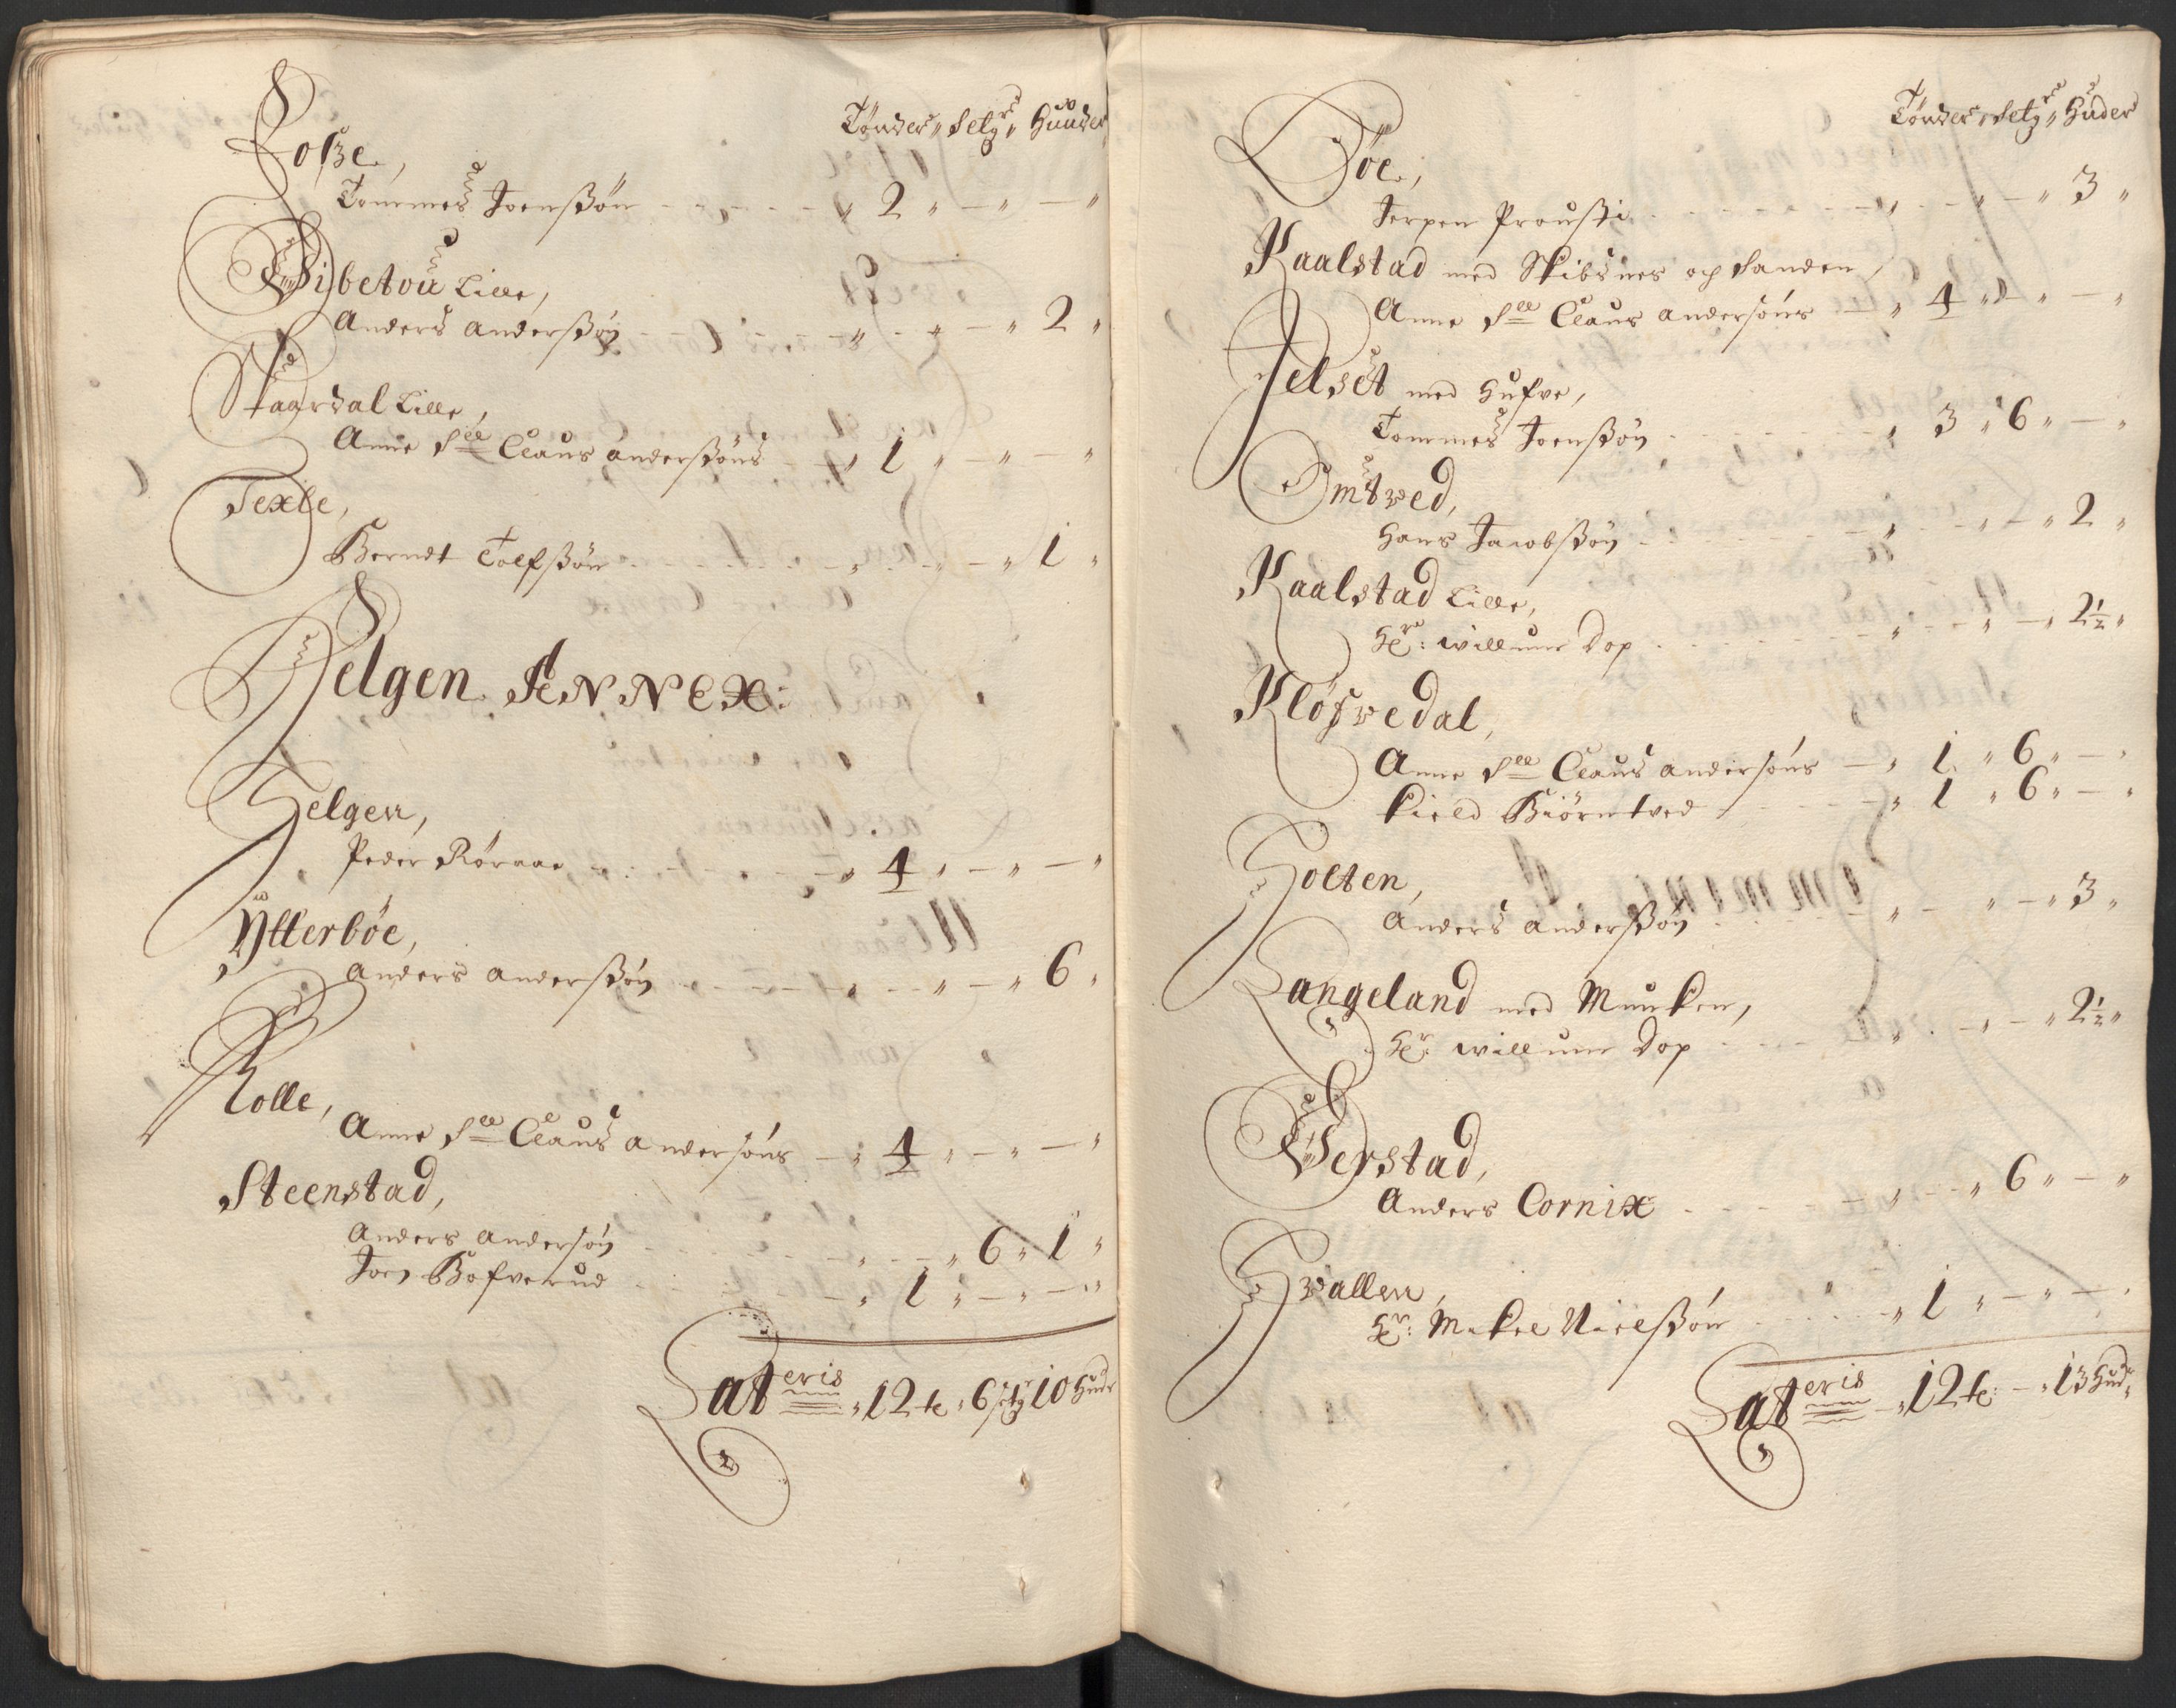 Tönder „ Setg „ Huuder
Foße,
Tommes Joenßön - - - „ 2 „ — „ — „
Vibetou Lille,
Anders Anderßøn - - - „ - „ — „ 2 „
Skaardal Lille,
Anne Sll Claus Anderßøns - „ 1 „ — „ — „
Texle,
Berndt Tolfßøn - - - „ - „ — „ 1 „
Helgen ANNEX:
Helgen,
Peder Röraae - - - „ 4 „ — „ — „
Ytterböe,
Anders Anderßøn - - - „ - „ — „ 6 „
Rolle,
Anne Sll Claus Andersøns — „ 4 „ — „ — „
Steenstad,
Anders Andersøn - - - „ - „ 6 „ 1 „
Joen Bofverud - - - „ 1 „ — „ — „
Lateris „ 12 te „ 6 setg 10 Hudr
Tönder „ Setg „ Huder
Böe,
Jerpen Proußti - - - „ - „ — „ 3 „
Kaalstad med Skibsnes og Sanden,
Anne Sll Claus Andersøns — „ 4 „ — „ — „
Jelset med Hufve,
Tommes Joenßøn - - - „ 3 „ 6 „ — „
Omtved,
Hans Jacobßøn - - - „ - „ — „ 2 „
Kaalstad Lille,
Hr: Willum Dop - - - „ - „ — „ 2½ „
Klöfvedal,
Anne Sll Claus Andersøns — „ 1 „ 6 „ — „
Kield Biörntved - - - „ 1 „ 6 „ — „
Holten,
Anders Anderßøn - - - „ - „ — „ 3 „
Langeland med Munken,
Hr: Willum Dop - - - „ - „ — „ 2½ „
Verstad,
Anders Cornix - - - „ - „ 6 „ — „
Hvallen,
Hr: Mikel Nielßøn - - - „ 1 „ — „ — „
Lateris „ 12 te: — „ 13 Hud: